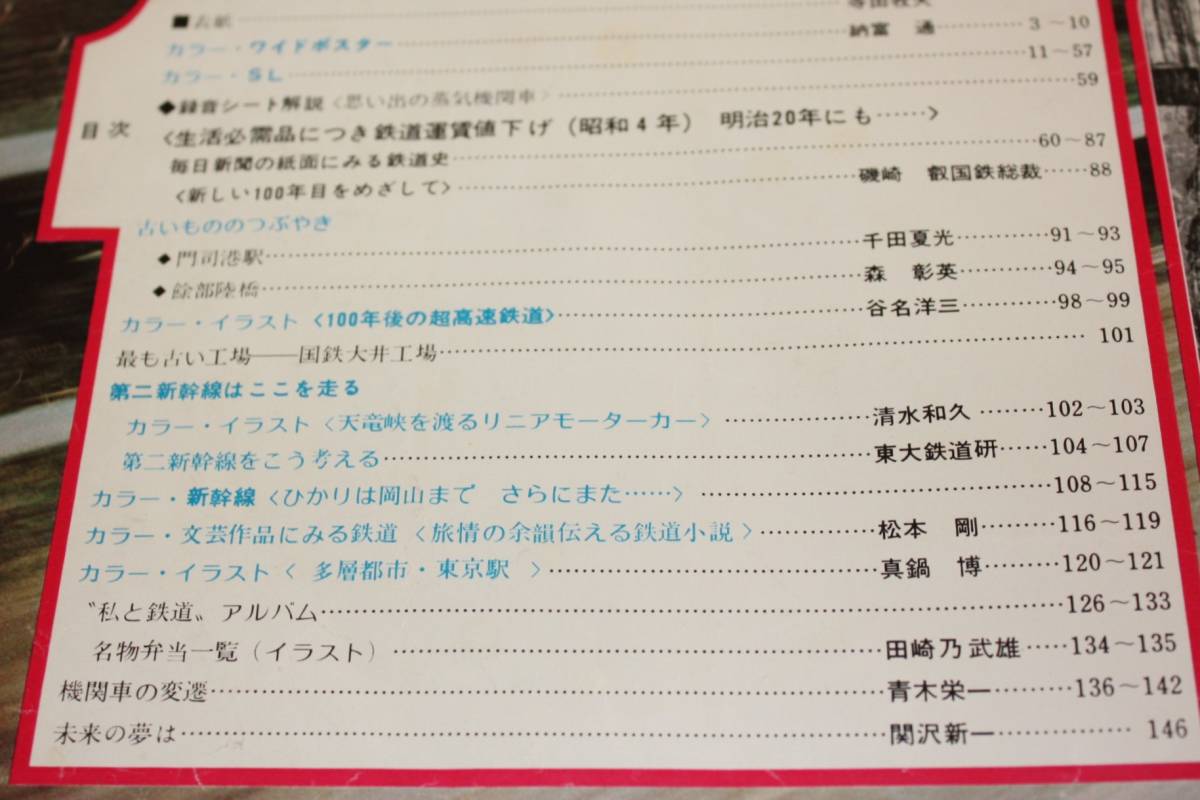 目次
■表紙
カラー・ワイドポスター 納富 通 3～10
カラー・SL 11～57
◆録音シート解説〈思い出の蒸気機関車〉 59
〈生活必需品につき鉄道運賃値下げ（昭和4年） 明治20年にも……〉
毎日新聞の紙面にみる鉄道史 60～87
〈新しい100年目をめざして〉 磯崎 叡国鉄総裁 88
古いもののつぶやき
◆門司港駅 千田夏光 91～93
◆餘部陸橋 森 彰英 94～95
カラー・イラスト〈100年後の超高速鉄道〉 谷名洋三 98～99
最も古い工場──国鉄大井工場 101
第二新幹線はここを走る
カラー・イラスト〈天竜峡を渡るリニアモーターカー〉 清水和久 102～103
第二新幹線をこう考える 東大鉄道研 104～107
カラー・新幹線〈ひかりは岡山まで さらにまた……〉 108～115
カラー・文芸作品にみる鉄道〈旅情の余韻伝える鉄道小説〉 松本 剛 116～119
カラー・イラスト〈多層都市・東京駅〉 真鍋 博 120～121
〝私と鉄道〟アルバム 126～133
名物弁当一覧（イラスト） 田崎乃武雄 134～135
機関車の変遷 青木栄一 136～142
未来の夢は 関沢新一 146